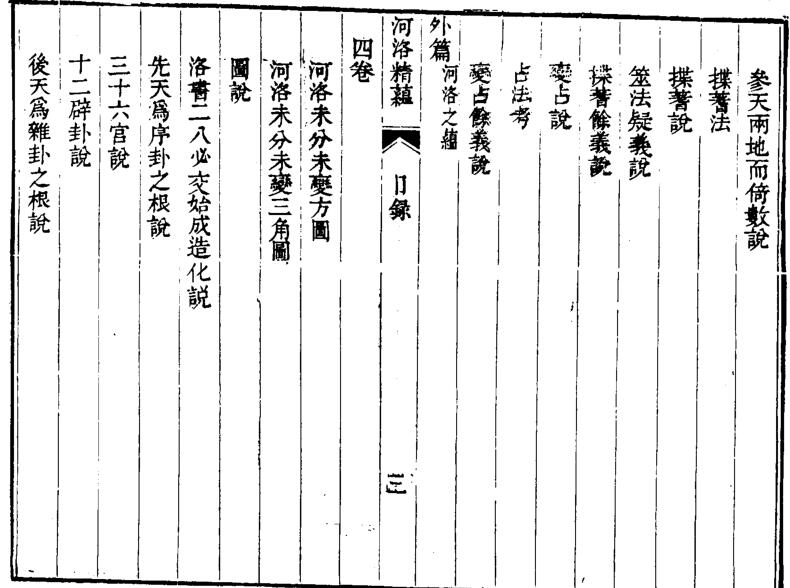 參天兩地而倚數說
揲蓍法
揲蓍說
筮法疑義說
揲蓍餘義說
變占說
占法考
變占餘義說
外篇 河洛之蘊
河洛精蘊 目録 三
四卷
河洛未分未變方圖
河洛未分未變三角圖
圖說
洛書二八必交始成造化説
先天爲序卦之根說
三十六宫說
十二辟卦說
後天爲雜卦之根說